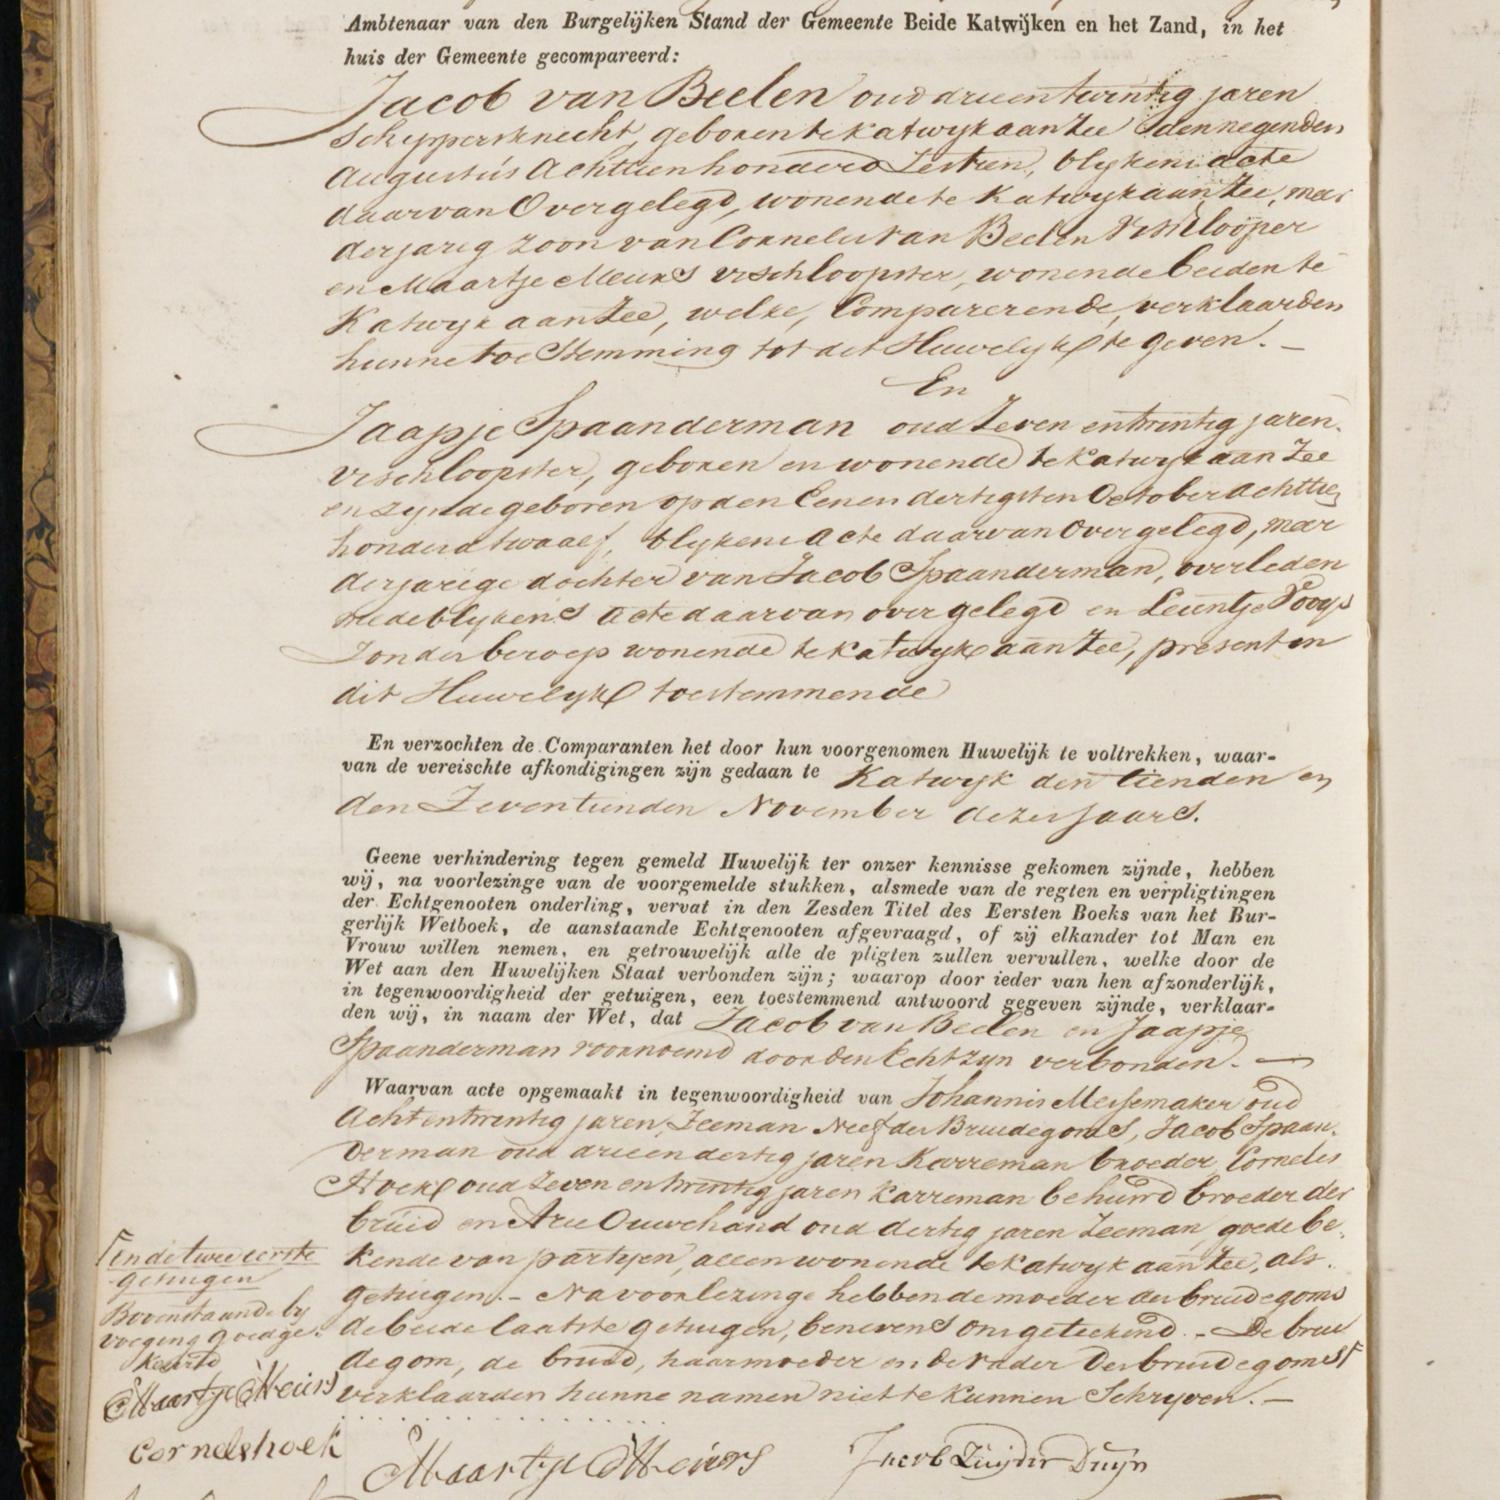 Ambtenaar van den Burgelijken Stand der Gemeente Beide Katwijken en het Zand, in het
huis der Gemeente gecompareerd:
Jacob van Beelen oud drieentwintig jaren
Schippersknecht, geboren te Katwijk aan Zee den negenden
Augustus Achttienhonderd Zestien, blykens acte
daarvan Overgelegd, wonende te Katwyk aan Zee, meer
derjarig zoon van Cornelis van Beelen Vischlooper
en Maartje Meurs vischloopster, wonende beiden te
Katwyk aan Zee, welke, Comparerende, verklaarden
hunne toestemming tot dit Huwelyk te geven. —
En
Jaapje Spaanderman oud Zeven entwintig jaren.
vischloopster, geboren en wonende te Katwyk aan Zee
en zynde geboren op den Eenen dertigsten October achttien
honderd twaalf, blykens Acte daarvan Overgelegd, meer
derjarige dochter van Jacob Spaanderman, overleden
mede blykens acte daarvan overgelegd en Leuntje Vooys
Zonder beroep wonende te Katwyk aan Zee, present en
dit Huwelyk toestemmende
En verzochten de Comparanten het door hun voorgenomen Huwelijk te voltrekken, waar-
van de vereischte afkondigingen zijn gedaan te Katwyk den tienden en
den Zeventienden November dezes Jaars.
Geene verhindering tegen gemeld Huwelijk ter onzer kennisse gekomen zijnde, hebben
wij, na voorlezinge van de voorgemelde stukken, alsmede van de regten en verpligtingen
der Echtgenooten onderling, vervat in den Zesden Titel des Eersten Boeks van het Bur-
gerlijk Wetboek, de aanstaande Echtgenooten afgevraagd, of zij elkander tot Man en
Vrouw willen nemen, en getrouwelijk alle de pligten zullen vervullen, welke door de
Wet aan den Huwelijken Staat verbonden zijn; waarop door ieder van hen afzonderlijk,
in tegenwoordigheid der getuigen, een toestemmend antwoord gegeven zijnde, verklaar-
den wij, in naam der Wet, dat Jacob van Beelen en Jaapje
Spaanderman voornoemd door den Echt zyn verbonden. —
Waarvan acte opgemaakt in tegenwoordigheid van Johannis Messemaker oud
Achtentwintig jaren, Zeeman Neef des Bruidegoms, Jacob Spaan-
derman oud drieen dertig jaren Karreman broeder, Cornelis
Hoek oud Zeven entwintig jaren Karreman behuwd broeder der
bruid en Arie Ouwehand oud dertig jaren Zeeman, goede be-
kende van partyen, allen wonende te Katwyk aan Zee, als
getuigen. - Na voorlezinge hebben de moeder des bruidegoms
de beide laatste getuigen, benevens ons geteekend. - De brui
degom, de bruid, haar moeder en de vader des bruidegoms
verklaarden hunne namen niet te kunnen Schryven. —
en de twee eerste
getuigen
Bovenstaande by
voeging goedge-
keurd
Maartje Meurs
Cornelshoek
Maartje Meurs Jacob Zuyder Duyn